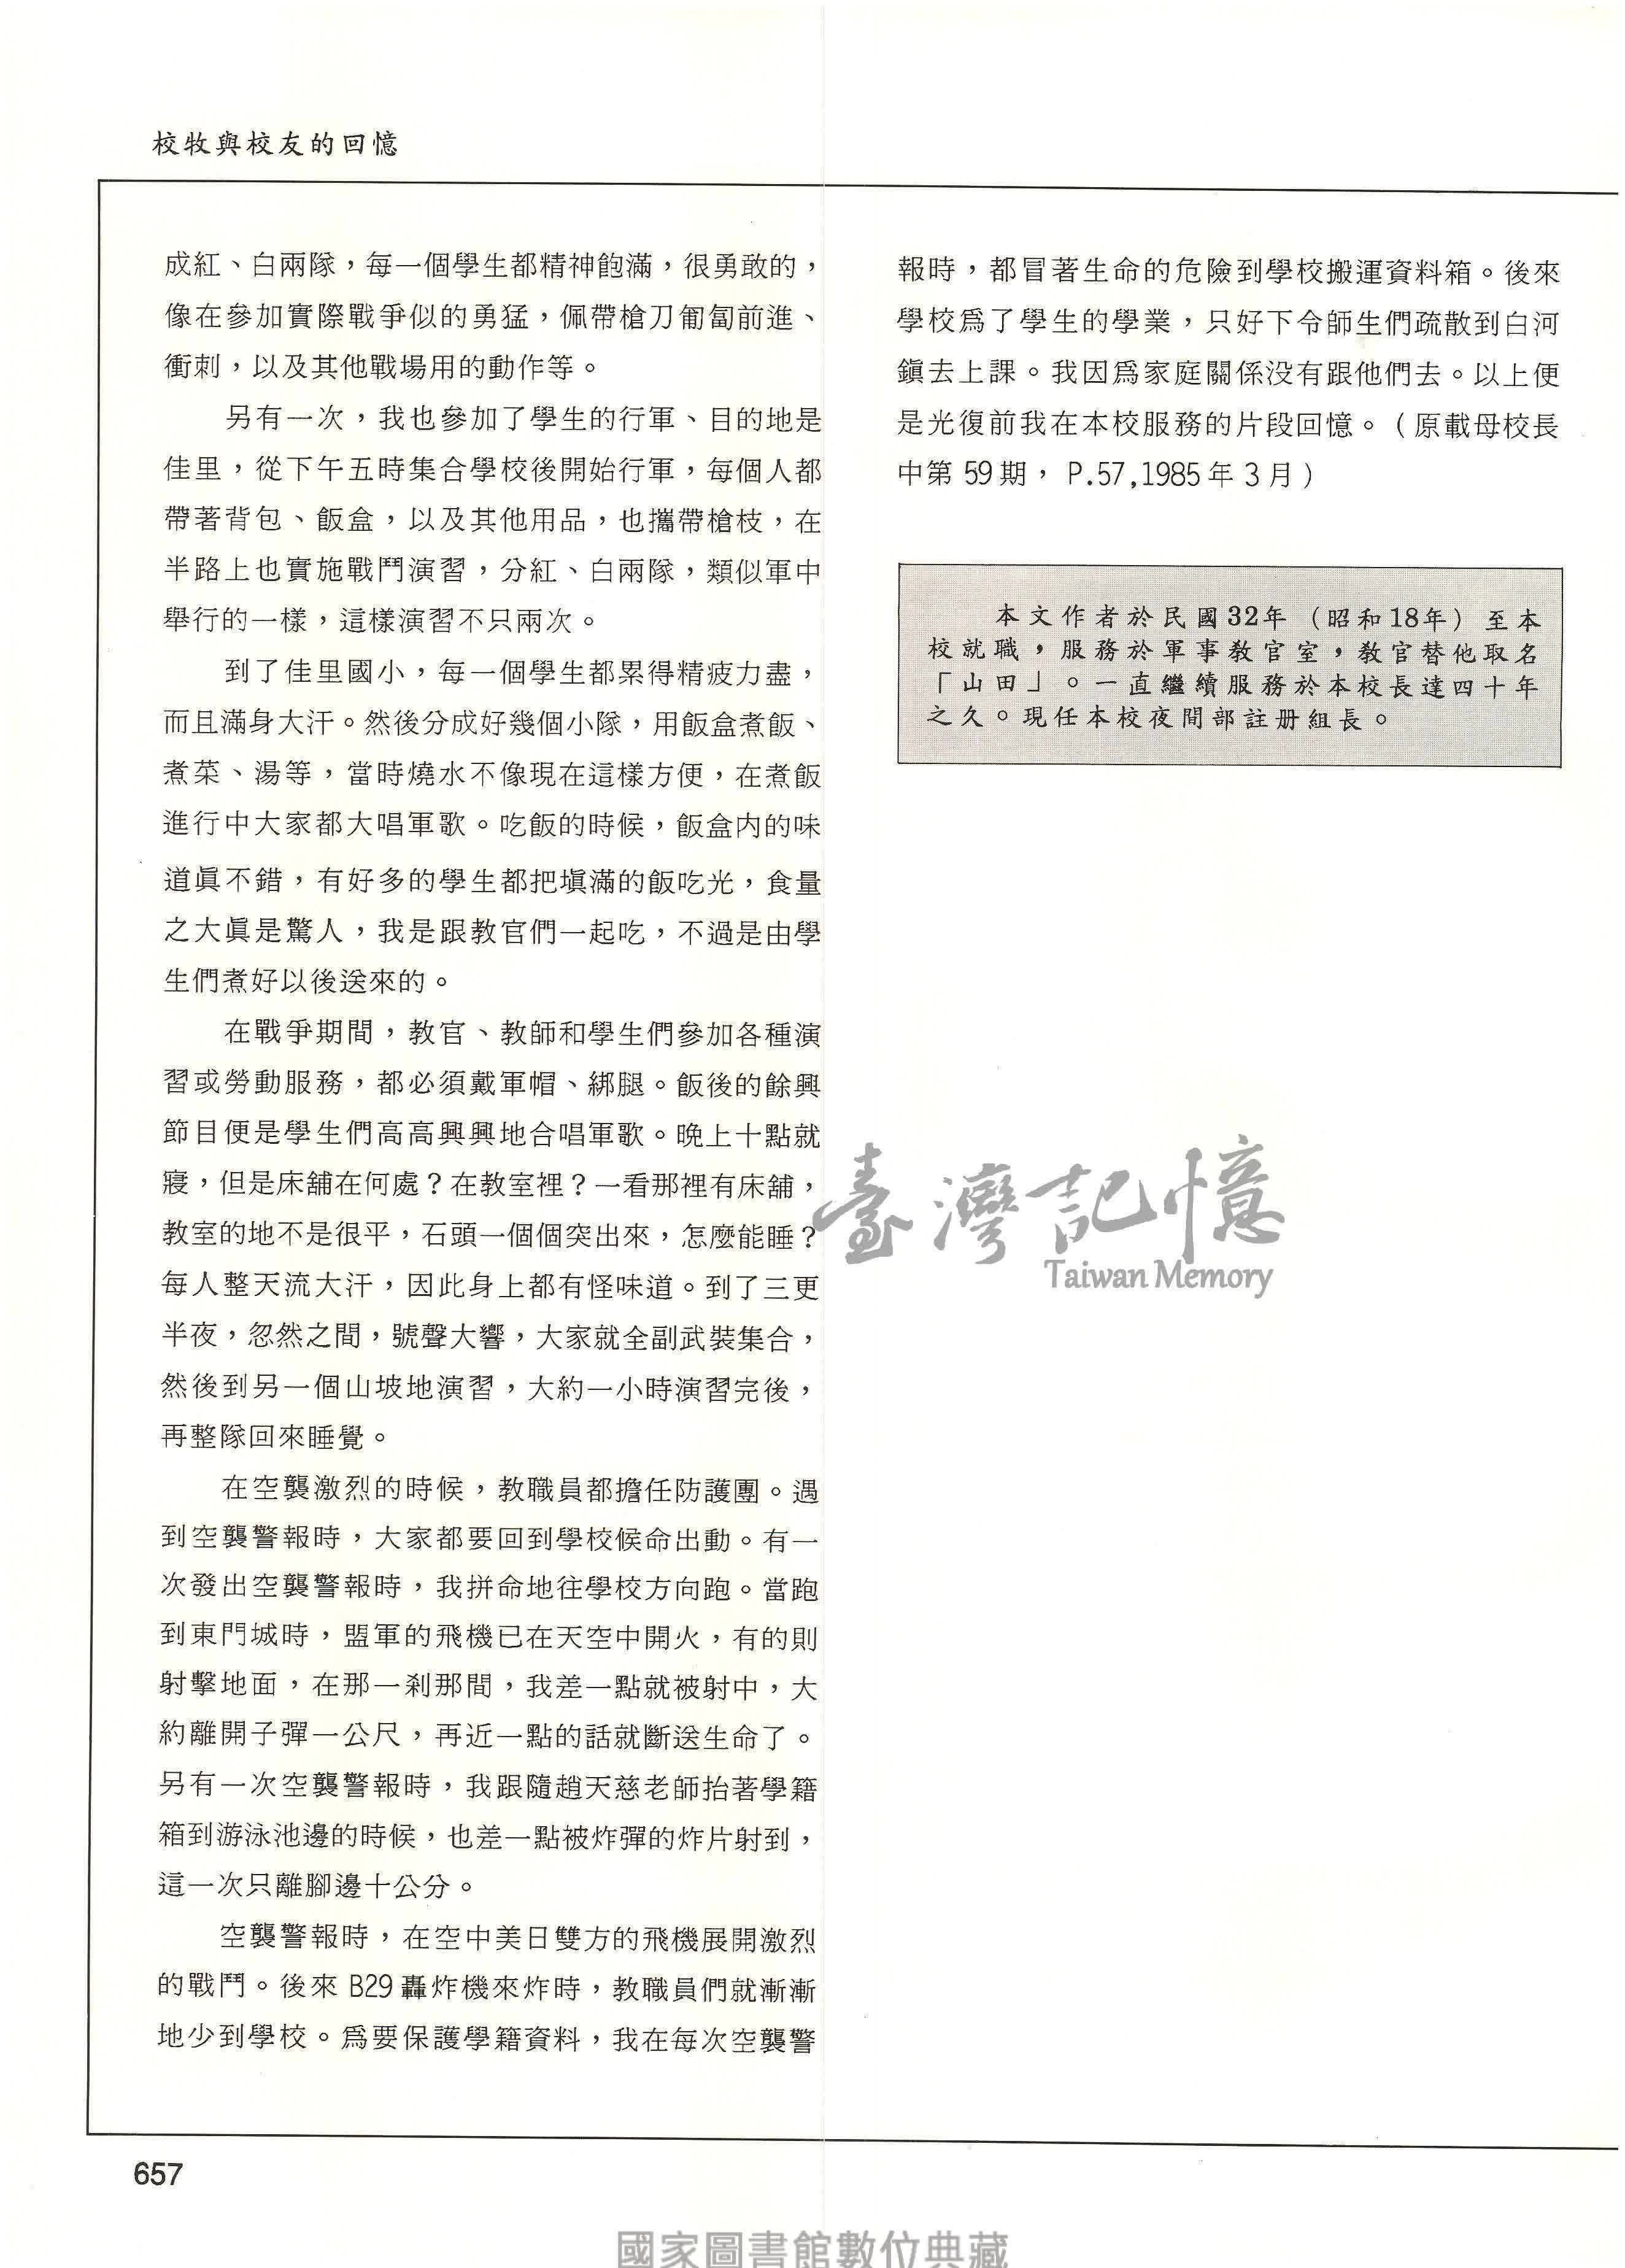 校牧與校友的回憶
成紅、白兩隊，每一個學生都精神飽滿，很勇敢的，
像在參加實際戰爭似的勇猛，佩帶槍刀匍匐前進、
衝刺，以及其他戰場用的動作等。
另有一次，我也參加了學生的行軍、目的地是
佳里，從下午五時集合學校後開始行軍，每個人都
帶著背包、飯盒，以及其他用品，也攜帶槍枝，在
半路上也實施戰鬥演習，分紅、白兩隊，類似軍中
舉行的一樣，這樣演習不只兩次。
到了佳里國小，每一個學生都累得精疲力盡，
而且滿身大汗。然後分成好幾個小隊，用飯盒煮飯、
煮菜、湯等，當時燒水不像現在這樣方便，在煮飯
進行中大家都大唱軍歌。吃飯的時候，飯盒內的味
道眞不錯，有好多的學生都把塡滿的飯吃光，食量
之大眞是驚人，我是跟教官們一起吃，不過是由學
生們煮好以後送來的。
在戰爭期間，教官、教師和學生們參加各種演
習或勞動服務，都必須戴軍帽、綁腿。飯後的餘興
節目便是學生們高高興興地合唱軍歌。晚上十點就
寢，但是床舖在何處？在教室裡？一看那裡有床舖，
教室的地不是很平，石頭一個個突出來，怎麼能睡？
每人整天流大汗，因此身上都有怪味道。到了三更
半夜，忽然之間，號聲大響，大家就全副武裝集合，
然後到另一個山坡地演習，大約一小時演習完後，
再整隊回來睡覺。
在空襲激烈的時候，教職員都擔任防護團。遇
到空襲警報時，大家都要回到學校候命出動。有一
次發出空襲警報時，我拼命地往學校方向跑。當跑
到東門城時，盟軍的飛機已在天空中開火，有的則
射擊地面，在那一剎那間，我差一點就被射中，大
約離開子彈一公尺，再近一點的話就斷送生命了。
另有一次空襲警報時，我跟隨趙天慈老師抬著學籍
箱到游泳池邊的時候，也差一點被炸彈的炸片射到，
這一次只離腳邊十公分。
空襲警報時，在空中美日雙方的飛機展開激烈
的戰鬥。後來 B29 轟炸機來炸時，教職員們就漸漸
地少到學校。爲要保護學籍資料，我在每次空襲警
報時，都冒著生命的危險到學校搬運資料箱。後來
學校爲了學生的學業，只好下令師生們疏散到白河
鎭去上課。我因爲家庭關係没有跟他們去。以上便
是光復前我在本校服務的片段回憶。（原載母校長
中第 59 期， P.57,1985 年 3 月）
本文作者於民國32年（昭和18年）至本
校就職，服務於軍事教官室，教官替他取名
「山田」。一直繼續服務於本校長達四十年
之久。現任本校夜間部註册組長。
臺灣記憶
Taiwan Memory
657
國家圖書館數位典藏